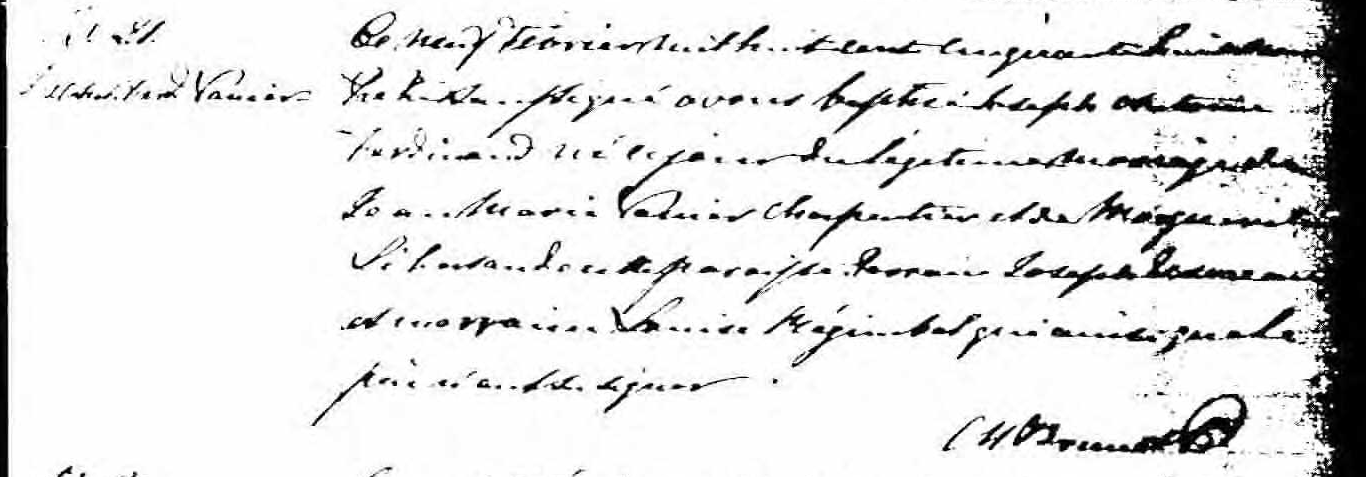 B. 21.
Ferd Vanier
Le neuf Février mil huit cent cinquante huit nous
Prêtre soussigné avons baptisé Joseph Antoine
Ferdinand né ce jour du légitime mariage de
Jean Marie Vanier charpentier et de Marguerite
de cette paroisse Parrain Joseph
et marraine Louise Régimbal qui ainsi que le
père n'ont su signer.
Brunet Ptre